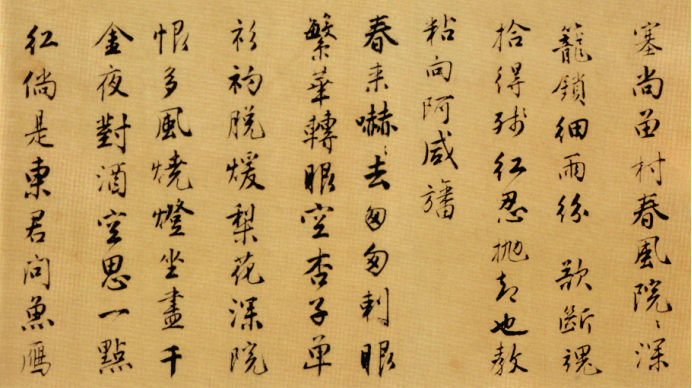 塞尚留村春風院〻深
籠鎖細雨絲欲斷魂
拾得殘紅忍拋却也教
粘向阿咸旛
春來嚇〻去匆匆刺眼
繁華轉眼空杏子單
衫初脫煖梨花深院
恨多風燒燈坐盡千
金夜對酒空思一點
紅倘是東君問魚雁